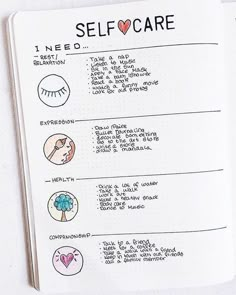 SELF CARE
I NEED...
- REST/
RELAXATION
- Take a nap
- Listen to Music
- Sit in the sun
- Apply a face mask
- Take a bath/shower
- Read a book
- Watch a funny movie
- Look for old photos
EXPRESSION
- Draw/Paint
- Bullet Journaling
- Decorate something
- Go to the art store
- Write a story
- Draw a mandala
- HEALTH
- Drink a lot of water
- Take a walk
- Work out
- Make a healthy snack
- Body care
- Dance to Music
COMPANIONSHIP
- Talk to a friend
- Meet for a coffee
- Play with a friend
- Keep in touch with old friends
- Call a family member